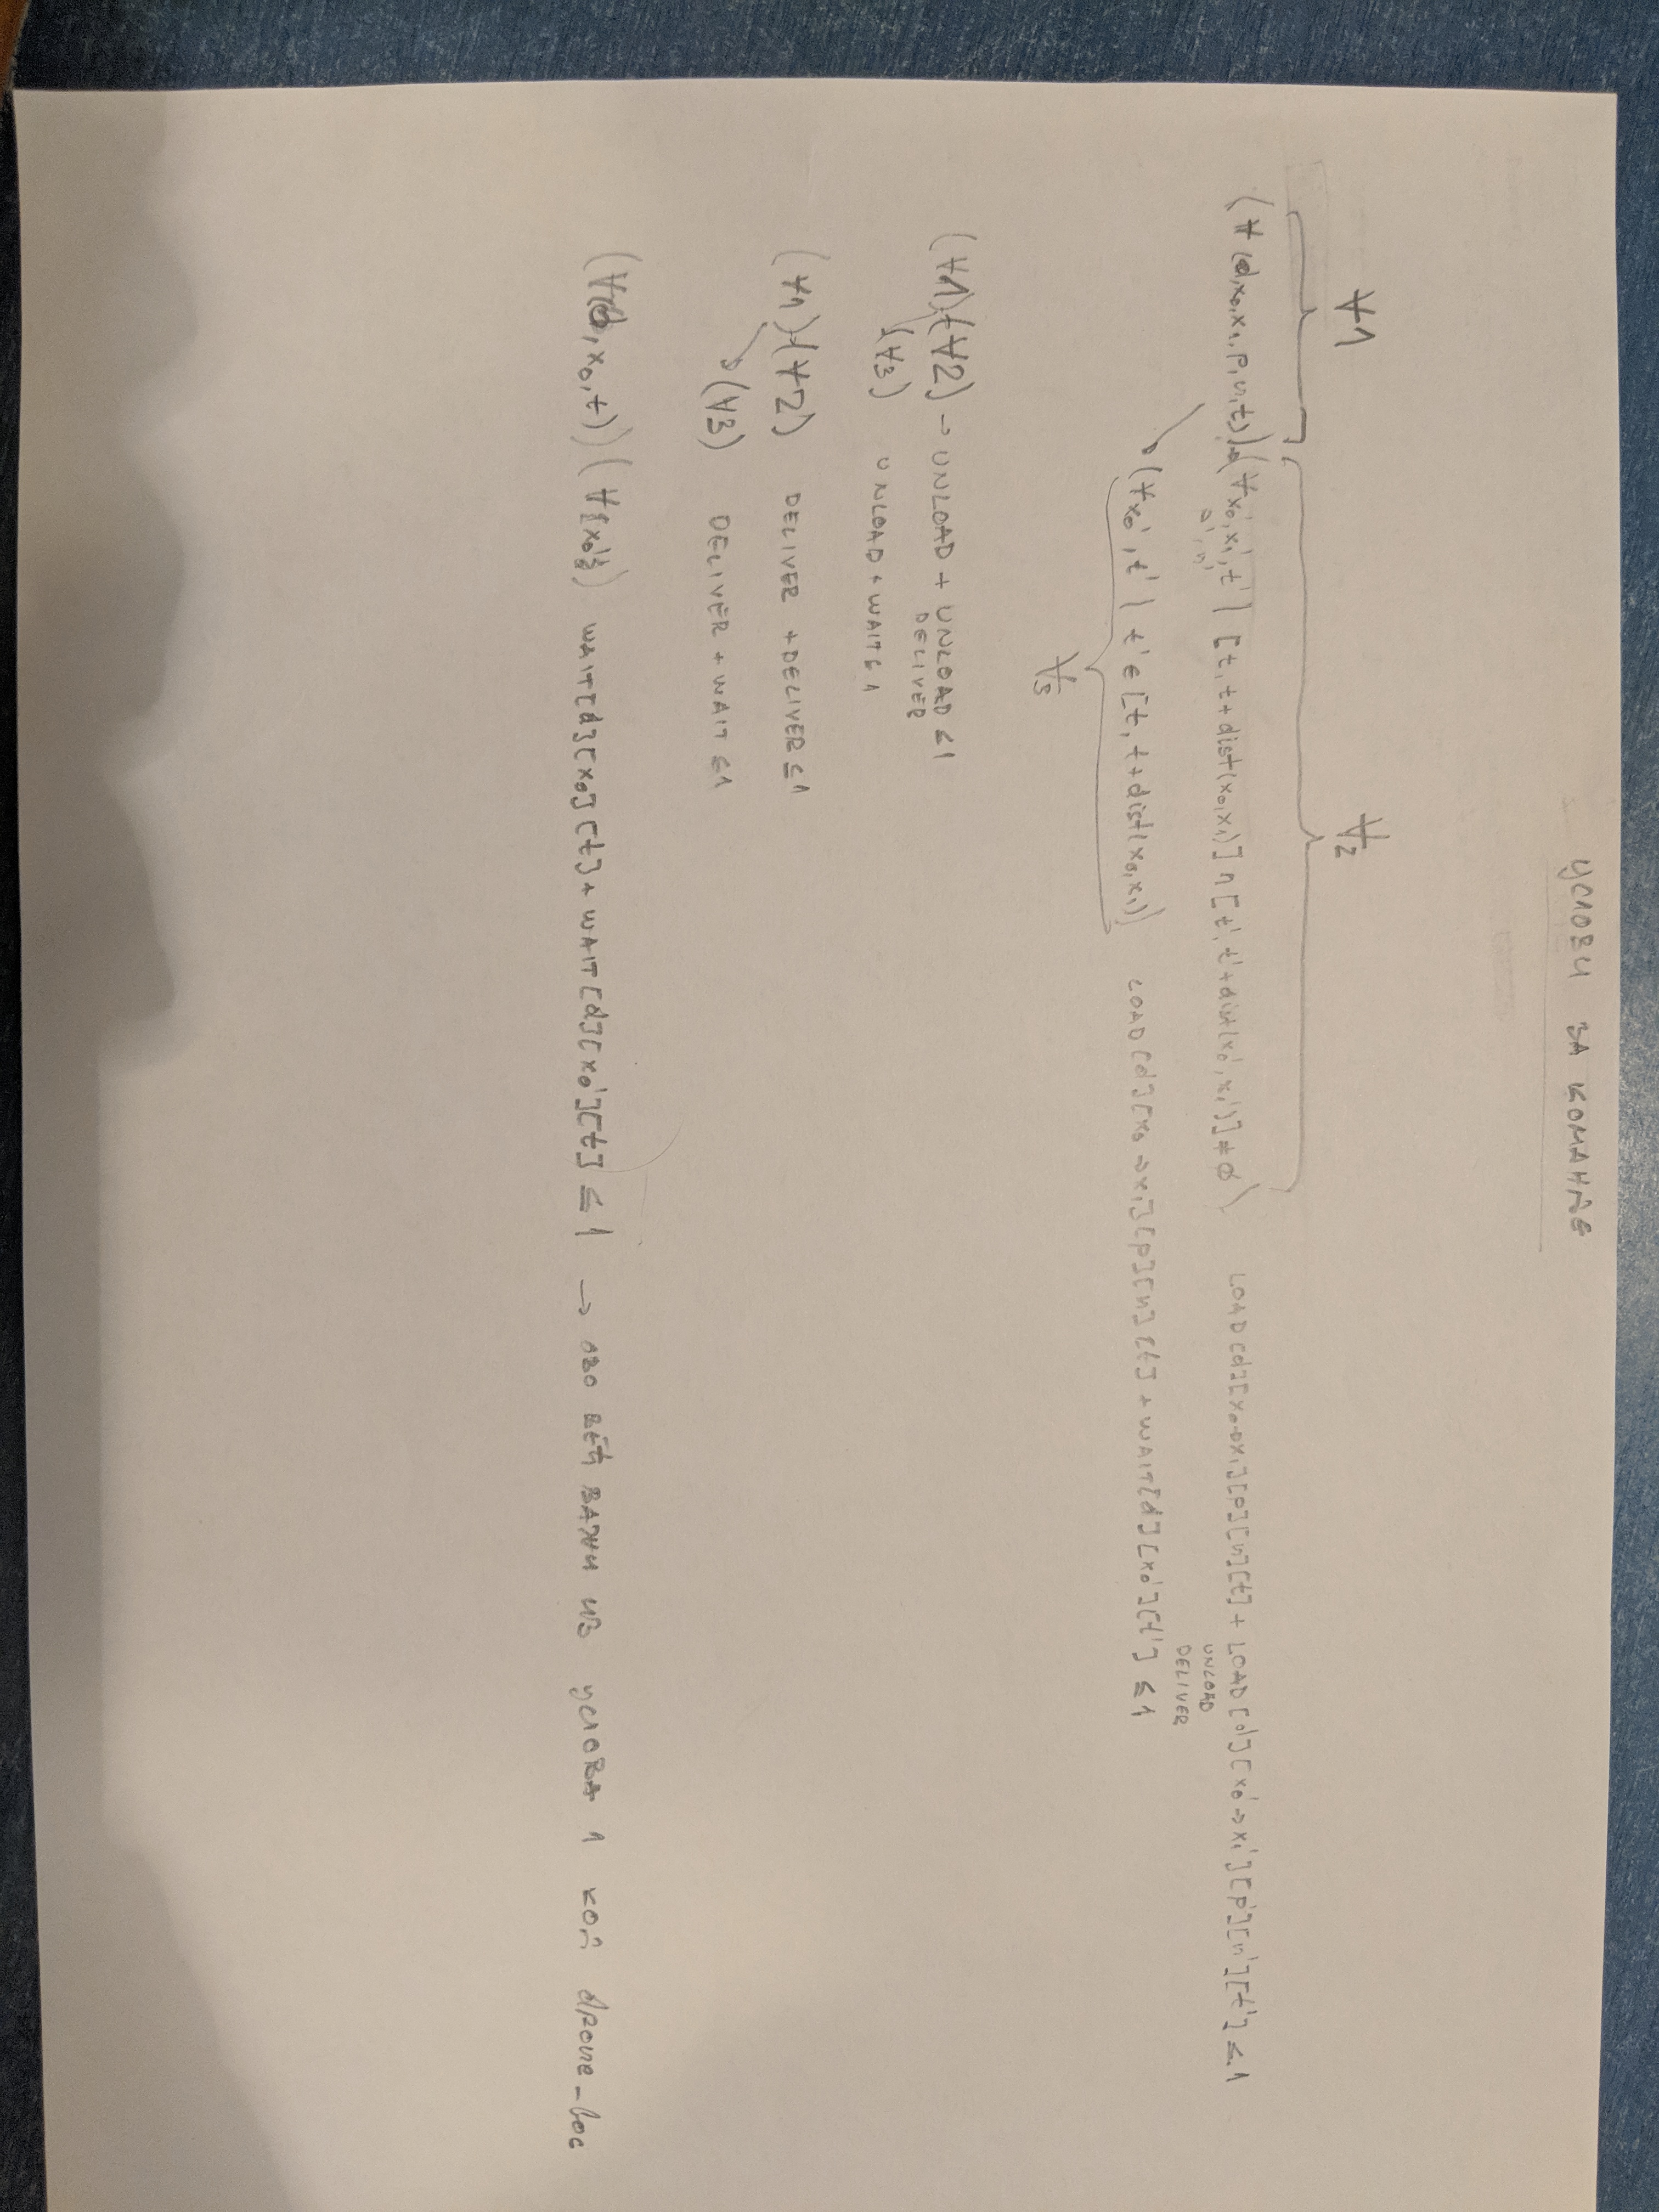 УСЛОВИ ЗА КОМАНДЕ
∀1
∀2
(∀(d,x₀,x₁,p,n,t))→(∀x₀',x₁',t' | [t,t+dist(x₀,x₁)]∩[t',t'+dist(x₀',x₁')]≠∅) LOAD[d][x₀→x₁][p][n][t] + LOAD[d][x₀'→x₁'][p'][n'][t'] ≤ 1
n'
UNLOAD
DELIVER
(∀x₀',t' | t'∈[t,t+dist(x₀,x₁)) LOAD[d][x₀→x₁][p][n][t] + WAIT[d][x₀'][t'] ≤ 1
∀3
(∀1)(∀2) → UNLOAD + UNLOAD ≤ 1
DELIVER
(∀3) UNLOAD + WAIT ≤ 1
(∀1)(∀2) DELIVER + DELIVER ≤ 1
(∀3) DELIVER + WAIT ≤ 1
(∀(d,x₀,t)) (∀x₀') WAIT[d][x₀][t] + WAIT[d][x₀'][t] ≤ 1 → ОВО ВЕЋ ВАЖИ ИЗ УСЛОВА 1 КОД drone-loc